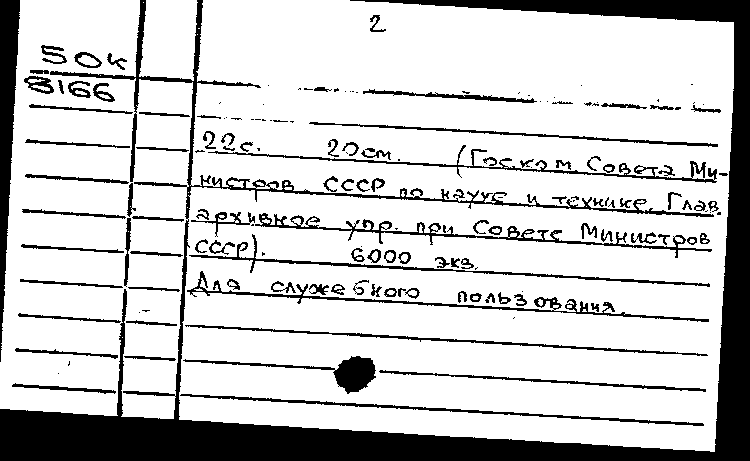 2
50к
3166
22с. 20см. (Госком. Совета Ми-
нистров СССР по науке и технике. Глав.
архивное упр. при Совете Министров
СССР). 6000 экз.
Для служебного пользования.